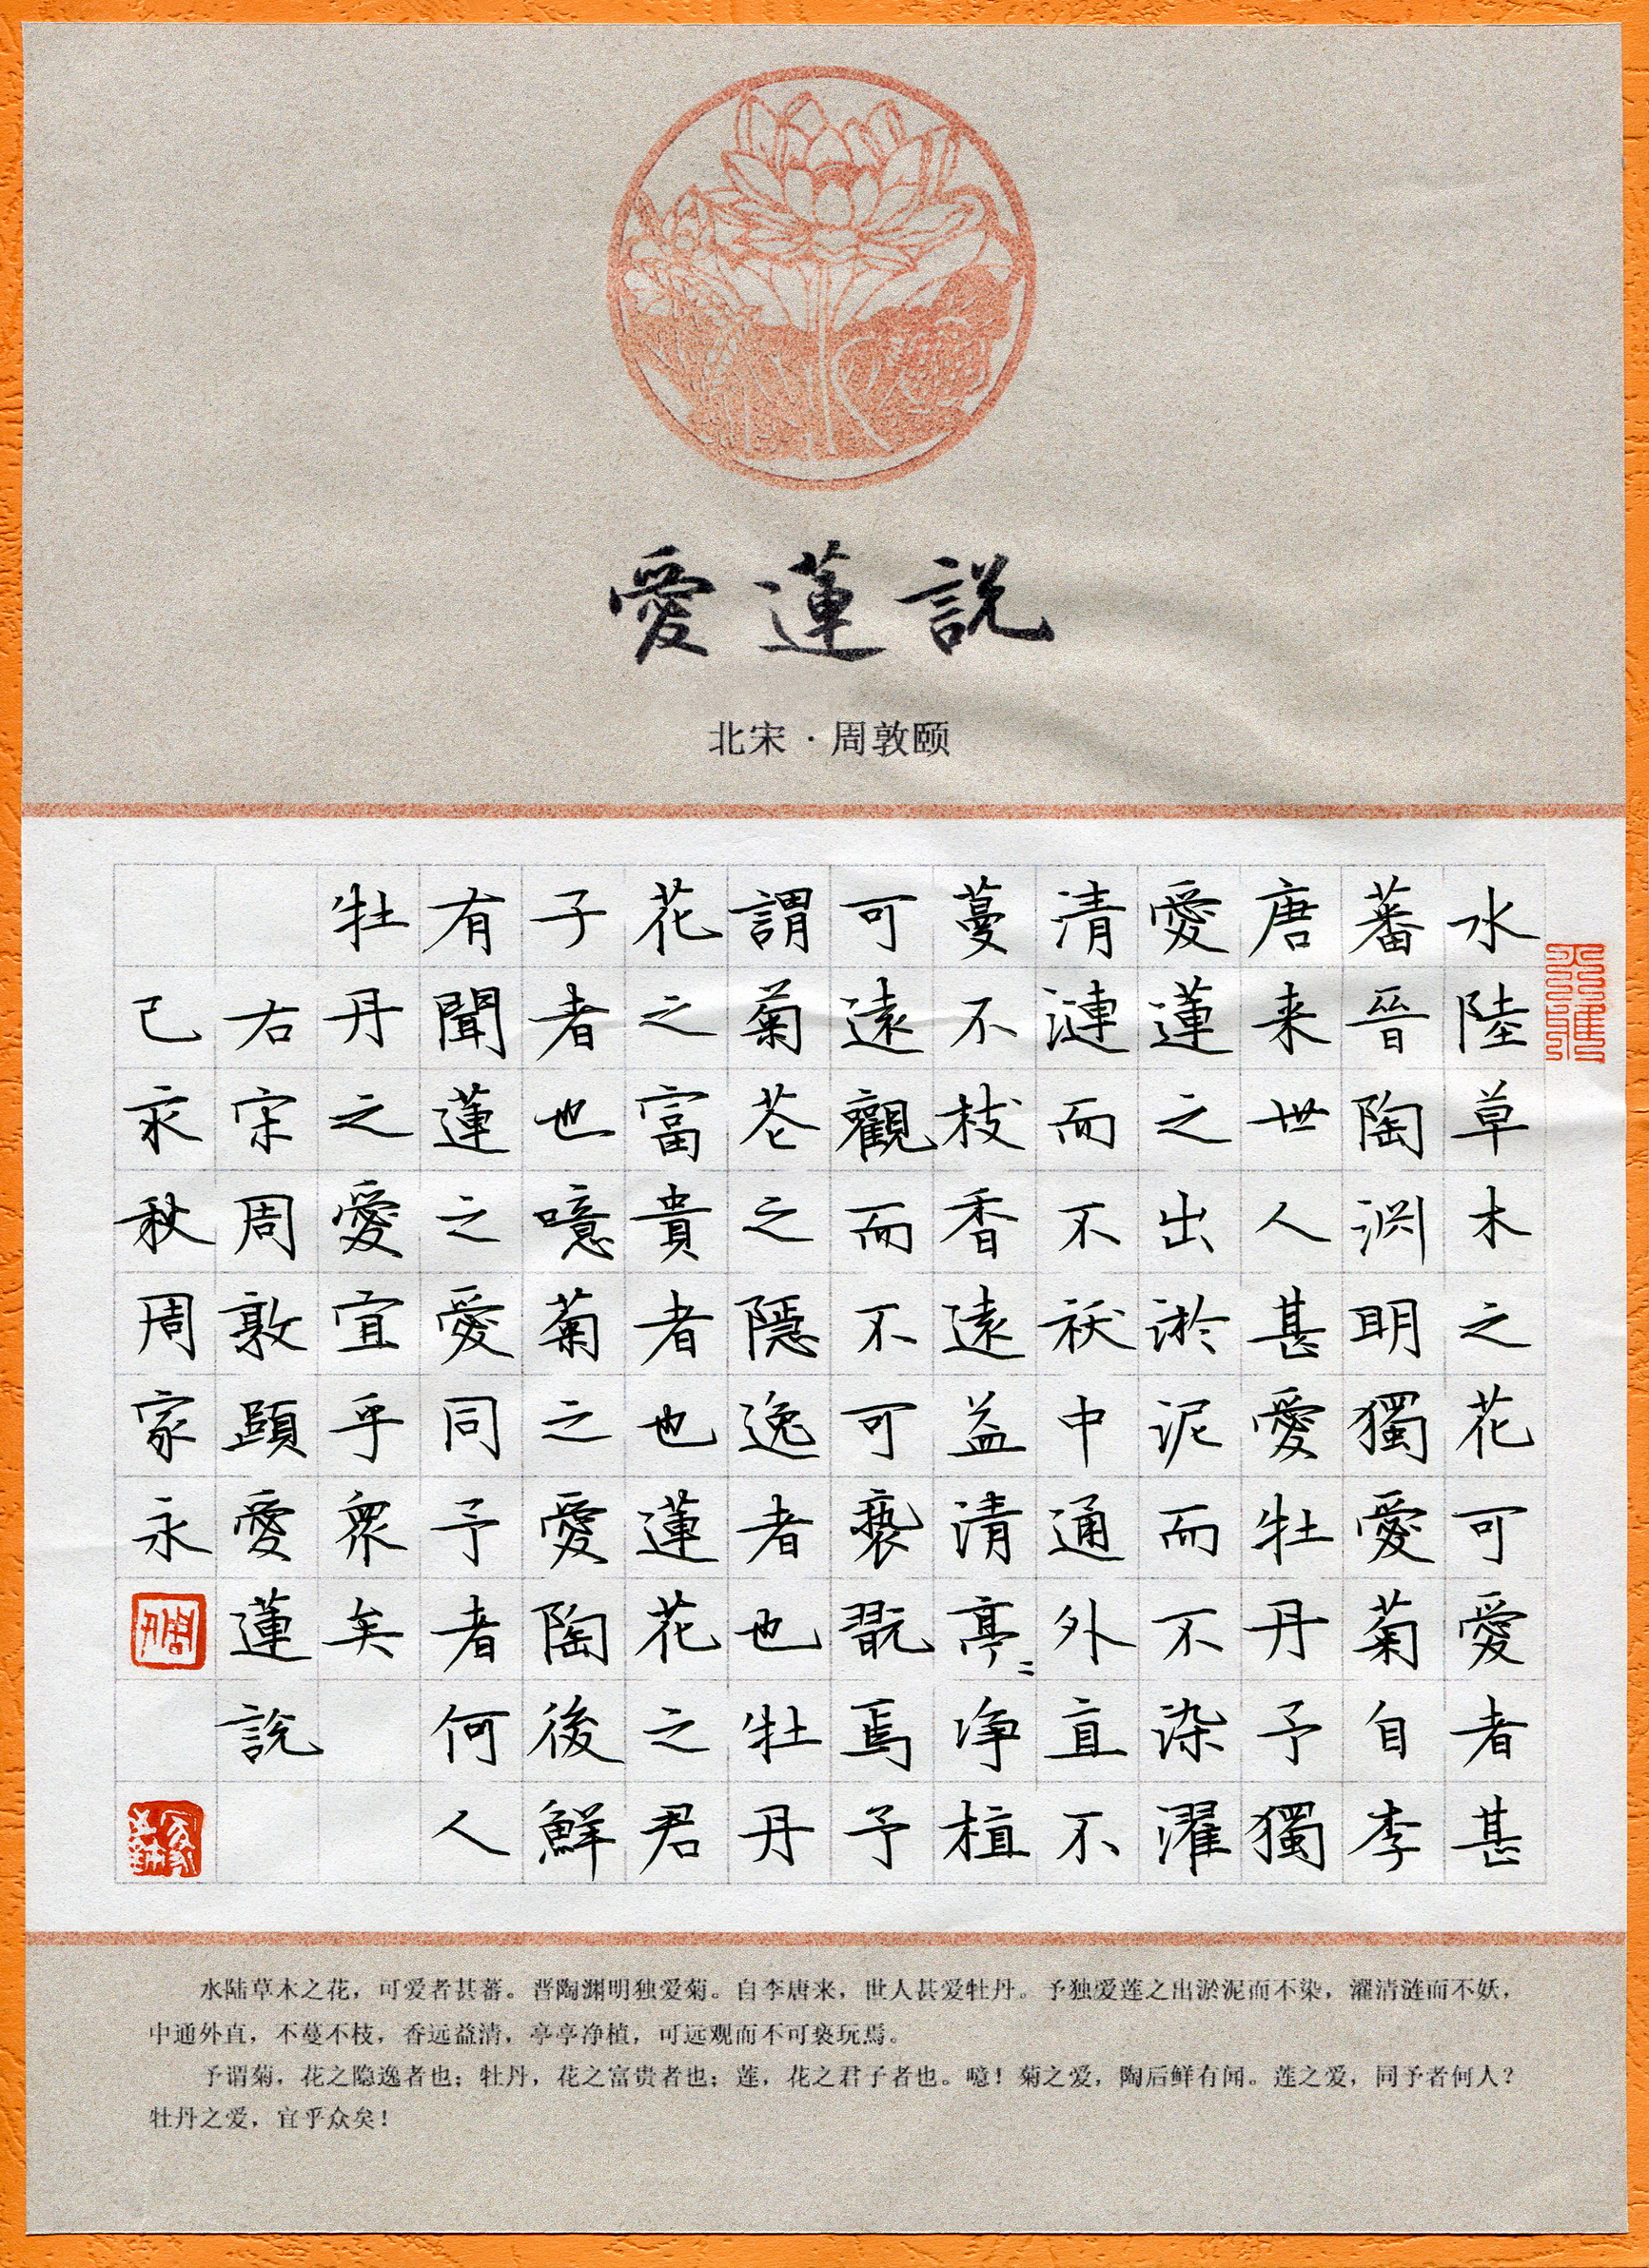 愛蓮説
北宋·周敦颐
水陸草木之花可愛者甚
蕃晉陶渊明獨愛菊自李
唐来世人甚愛牡丹予獨
愛蓮之出淤泥而不染濯
清漣而不祅中通外直不
蔓不枝香遠益清亭〻净植
可遠觀而不可亵翫焉予
謂菊苍之隱逸者也牡丹
花之富貴者也蓮花之君
子者也噫菊之愛陶後鮮
有聞蓮之愛同予者何人
牡丹之愛宜乎衆矣
右宋周敦頤愛蓮說
己亥秋周家永
水陆草木之花，可爱者甚蕃。晋陶渊明独爱菊。自李唐来，世人甚爱牡丹。予独爱莲之出淤泥而不染，濯清涟而不妖，
中通外直，不蔓不枝，香远益清，亭亭净植，可远观而不可亵玩焉。
予谓菊，花之隐逸者也；牡丹，花之富贵者也；莲，花之君子者也。噫！菊之爱，陶后鲜有闻。莲之爱，同予者何人？
牡丹之爱，宜乎众矣！